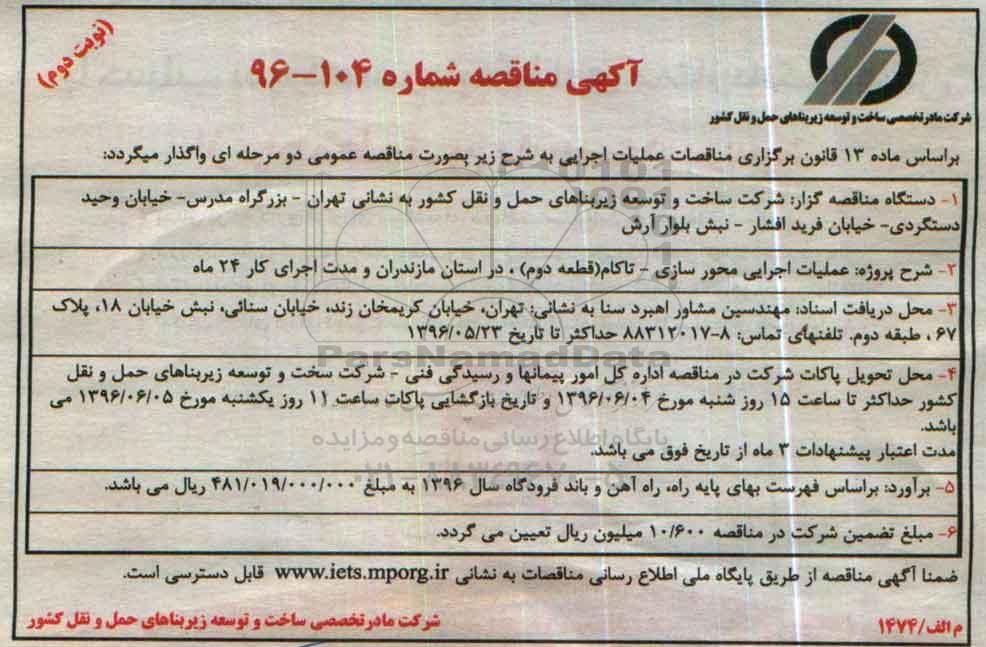 (نوبت دوم)
آگهی مناقصه شماره ۱۰۴-۹۶
شرکت مادر تخصصی ساخت و توسعه زیربناهای حمل و نقل کشور
براساس ماده ۱۳ قانون برگزاری مناقصات عملیات اجرایی به شرح زیر بصورت مناقصه عمومی دو مرحله ای واگذار میگردد:
۱- دستگاه مناقصه گزار: شرکت ساخت و توسعه زیربناهای حمل و نقل کشور به نشانی تهران - بزرگراه مدرس- خیابان وحید
دستگردی- خیابان فرید افشار - نبش بلوار آرش
۲- شرح پروژه: عملیات اجرایی محور سازی - تاکام(قطعه دوم) ، در استان مازندران و مدت اجرای کار ۲۴ ماه
۳- محل دریافت اسناد: مهندسین مشاور اهبرد سنا به نشانی: تهران، خیابان کریمخان زند، خیابان سنائی، نبش خیابان ۱۸، پلاک
۶۷ ، طبقه دوم. تلفنهای تماس: ۸-۸۸۳۱۲۰۱۷ حداکثر تا تاریخ ۱۳۹۶/۰۵/۲۳
ParsNamadData
۴- محل تحویل پاکات شرکت در مناقصه اداره کل امور پیمانها و رسیدگی فنی - شرکت سخت و توسعه زیربناهای حمل و نقل
کشور حداکثر تا ساعت ۱۵ روز شنبه مورخ ۱۳۹۶/۰۶/۰۴ و تاریخ بازگشایی پاکات ساعت ۱۱ روز یکشنبه مورخ ۱۳۹۶/۰۶/۰۵ می
باشد.
پایگاه اطلاع رسانی مناقصه و مزایده
مدت اعتبار پیشنهادات ۳ ماه از تاریخ فوق می باشد.
۵- برآورد: براساس فهرست بهای پایه راه، راه آهن و باند فرودگاه سال ۱۳۹۶ به مبلغ ۴۸۱/۰۱۹/۰۰۰/۰۰۰ ریال می باشد.
۶- مبلغ تضمین شرکت در مناقصه ۱۰/۶۰۰ میلیون ریال تعیین می گردد.
ضمنا آگهی مناقصه از طریق پایگاه ملی اطلاع رسانی مناقصات به نشانی www.iets.mporg.ir قابل دسترسی است.
م الف/۱۴۷۴
شرکت مادر تخصصی ساخت و توسعه زیربناهای حمل و نقل کشور